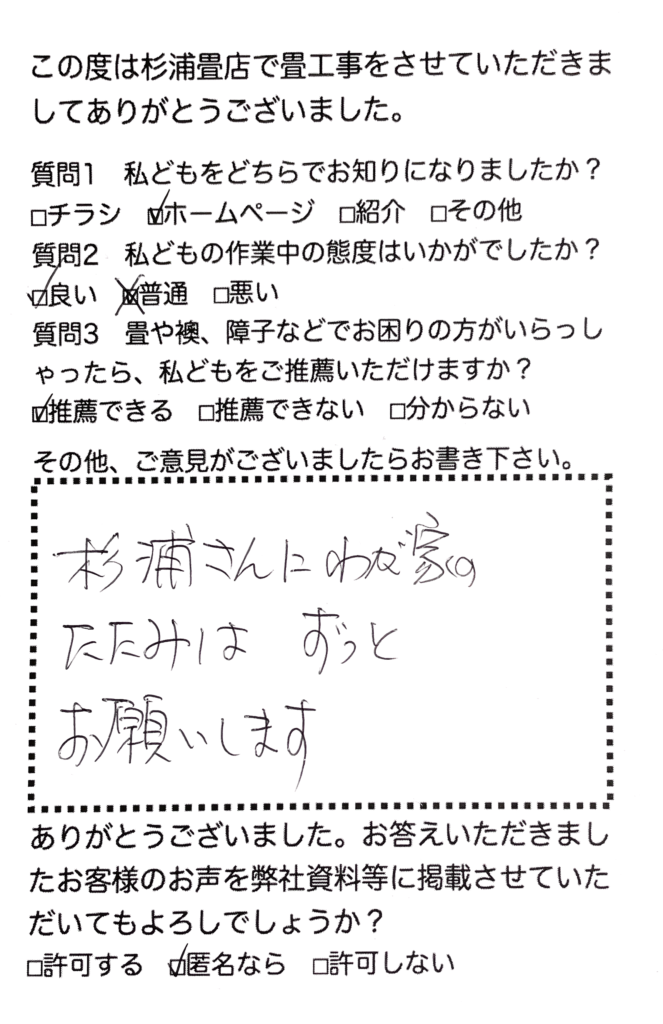 この度は杉浦畳店で畳工事をさせていただきま
してありがとうございました。
質問1 私どもをどちらでお知りになりましたか？
□チラシ ☑ホームページ □紹介 □その他
質問2 私どもの作業中の態度はいかがでしたか？
☑良い ☒普通 □悪い
質問3 畳や襖、障子などでお困りの方がいらっし
ゃったら、私どもをご推薦いただけますか？
☑推薦できる □推薦できない □分からない
その他、ご意見がございましたらお書き下さい。
杉浦さんにわが家の
たたみは ずっと
お願いします
ありがとうございました。お答えいただきまし
たお客様のお声を弊社資料等に掲載させていた
だいてもよろしでしょうか？
□許可する ☑匿名なら □許可しない